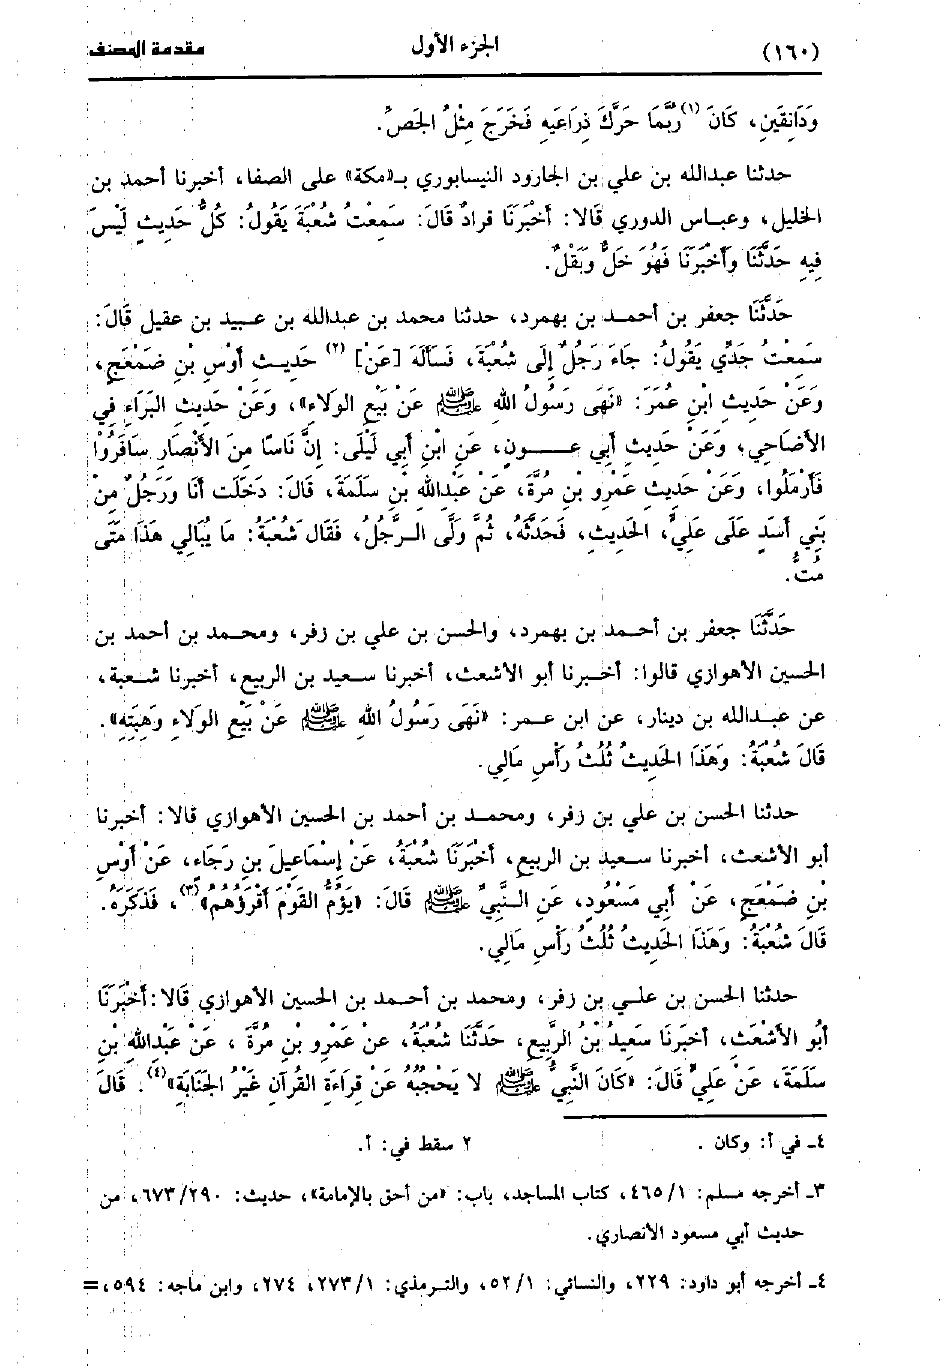 (١٦٠) الجزء الأول مقدمة المصنف
وَدَانِقَينِ، كَانَ (١) رُبَّمَا حَرَّكَ ذِرَاعَيهِ فَخَرَجَ مِثْلُ الجَصِّ.
حدثنا عبدالله بن علي بن الجارود النيسابوري بـ«مكة» على الصفا، أخبرنا أحمد بن
الخليل، وعباس الدوري قالا: أَخْبَرَنَا قرادٌ قَالَ: سَمِعتُ شُعْبَةَ يَقُولُ: كُلُّ حَديثٍ لَيْسَ
فِيهِ حَدَّثَنَا وَأَخْبَرَنَا فَهُوَ خَلٌّ وبَقْلٌ.
حَدَّثَنَا جعفر بن أحمد بن بهمرد، حدثنا محمد بن عبدالله بن عبيد بن عقيل قَالَ:
سَمِعتُ جَدِّي يَقُولُ: جَاءَ رَجُلٌ إِلَى شُعْبَةَ، فَسَأَلَهُ [عَنْ] (٢) حَدِيثِ أَوْسِ بْنِ ضَمْعَجٍ،
وَعَنْ حَدِيثِ ابْنِ عُمَرَ: «نَهَى رَسُولُ اللهِ ﷺ عَنْ بَيْعِ الوَلاءِ»، وَعَنْ حَدِيثِ البَرَاءِ فِي
الأَضَاحِي، وَعَنْ حَدِيثِ أَبِي عَونٍ، عَنِ ابْنِ أَبِي لَيْلَى: إِنَّ نَاسًا مِنَ الأَنْصَارِ سَافَرُوا
فَأَرْمَلُوا، وَعَنْ حَدِيثِ عَمْرِو بْنِ مُرَّةَ، عَنْ عَبْدِاللهِ بْنِ سَلَمَةَ، قَالَ: دَخَلَت أَنَا وَرَجُلٌ مِنْ
بَنِي أَسَدٍ عَلَى عَلِيٍّ، الحَدِيثِ، فَحَدَّثَهُ، ثُمَّ وَلَّى الرَّجُلُ، فَقَالَ شُعْبَةُ: مَا يُبَالِي هَذَا مَتَى
مُتُّ.
حَدَّثَنَا جعفر بن أحمد بن بهمرد، والحسن بن علي بن زفر، ومحمد بن أحمد بن
الحسين الأهوازي قالوا: أخبرنا أبو الأشعث، أخبرنا سعيد بن الربيع، أخبرنا شعبة،
عن عبدالله بن دينار، عن ابن عمر: «نَهَى رَسُولُ اللهِ ﷺ عَنْ بَيْعِ الوَلَاءِ وَهَبَتِهِ».
قَالَ شُعْبَةُ: وَهَذَا الحَدِيثُ ثُلُثُ رَأْسِ مَالِي.
حدثنا الحسن بن علي بن زفر، ومحمد بن أحمد بن الحسين الأهوازي قالا: أخبرنا
أبو الأشعث، أخبرنا سعيد بن الربيع، أَخْبَرَنَا شُعْبَةُ، عَنْ إِسْمَاعِيلَ بنِ رَجَاءٍ، عَنْ أَوْسِ
بْنِ ضَمْعَجٍ، عَنْ أَبِي مَسْعُودٍ، عَنِ النَّبِيِّ ﷺ قَالَ: «يَؤُمُّ القَوْمَ أَقْرَؤُهُمْ» (٣)، فَذَكَرَهُ.
قَالَ شُعْبَةُ: وَهَذَا الحَدِيثُ ثُلُثُ رَأْسِ مَالِي.
حدثنا الحسن بن علي بن زفر، ومحمد بن أحمد بن الحسين الأهوازي قَالا: أَخْبَرَنَا
أَبُو الأَشْعَثِ، أَخبَرَنَا سَعِيدُ بْنُ الرَّبِيعِ، حَدَّثَنَا شُعْبَةُ، عَنْ عَمْرِو بْنِ مُرَّةَ، عَنْ عَبْدِاللهِ بْنِ
سَلَمَةَ، عَنْ عَلِيٍّ قَالَ: «كَانَ النَّبِيُّ ﷺ لا يَحْجُبُهُ عَنْ قِرَاءَةِ القُرآنِ غَيْرُ الجَنَابَةِ» (٤). قَالَ
٤ـ في أ: وكان. ٢ سقط في: أ.
٣ـ أخرجه مسلم: ٤٦٥/١، كتاب المساجد، باب: «من أحق بالإمامة»، حديث: ٦٧٣/٢٩٠، من
حديث أبي مسعود الأنصاري.
٤ـ أخرجه أبو داود: ٢٢٩، والنسائي: ٥٢/١، والترمذي: ٢٧٣/١، ٢٧٤، وابن ماجه: ٥٩٤، =